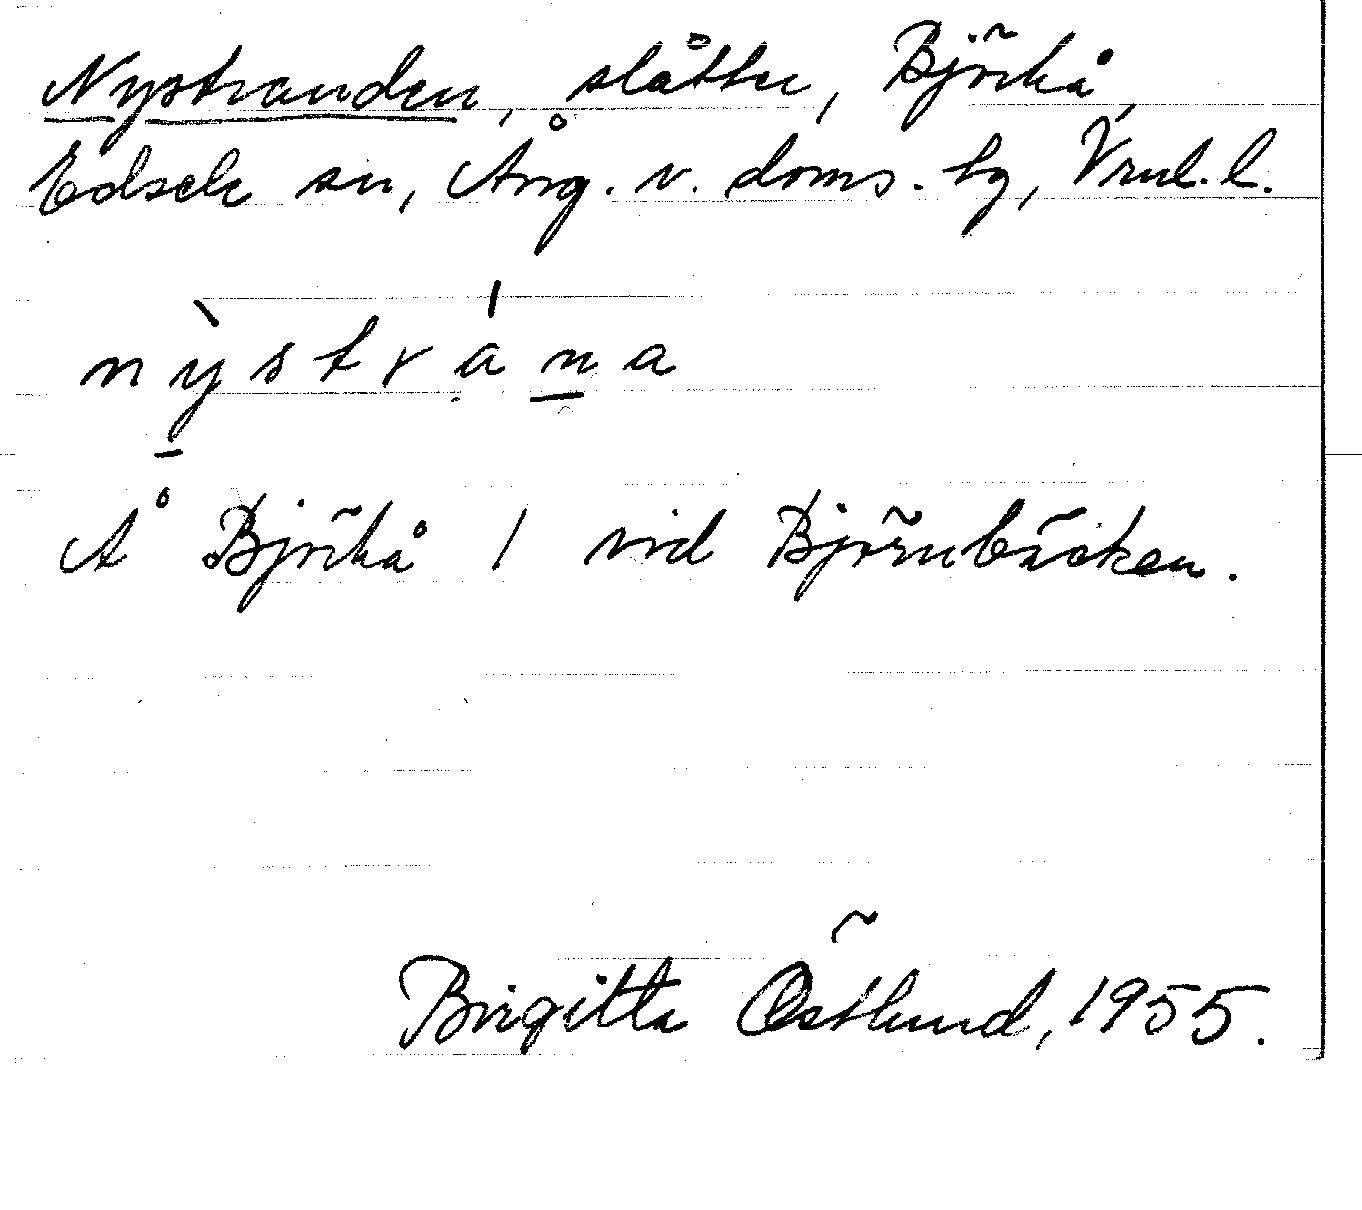 Nystranden, slåtter, Björkå,
Edsele sn, Ång. v. doms. hg, Vrnl. l.
nỳstrána
Å Björkå 1 vid Björnbäcken.
Birgitta Östlund, 1955.